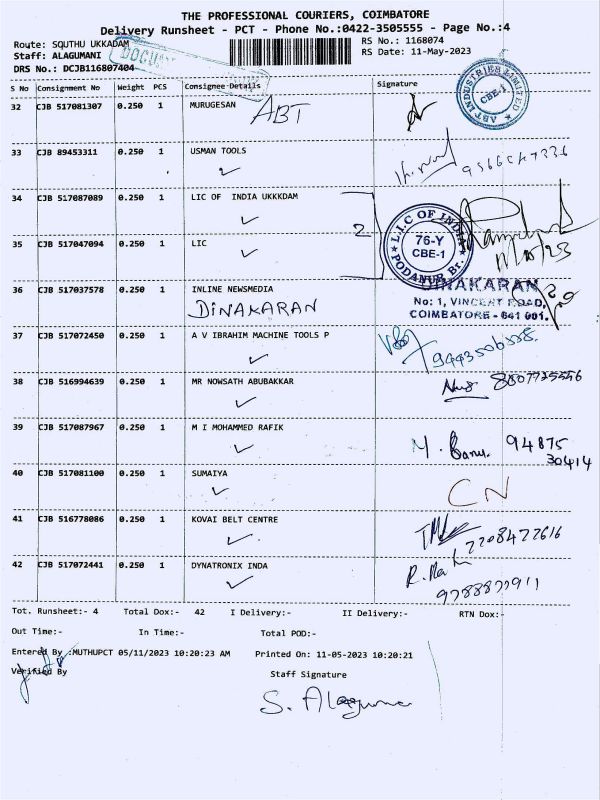 THE PROFESSIONAL COURIERS, COIMBATORE
Delivery Runsheet - PCT - Phone No.:0422-3505555 - Page No.:4
Route: SOUTHU UKKADAM
RS No.: 1168074
Staff: ALAGUMANI
RS Date: 11-May-2023
DRS No.: DCJB116807404
S No Consignment No Weight PCS Consignee Details Signature
32 CJB 517081307 0.250 1 MURUGESAN
ABT
ABT INDUSTRIES LIMITED
CBE-1
33 CJB 89453311 0.250 1 USMAN TOOLS
34 CJB 517087089 0.250 1 LIC OF INDIA UKKKDAM
2
L.I.C OF INDIA
76-Y
CBE-1
PODANUR Br.
35 CJB 517047094 0.250 1 LIC
36 CJB 517037578 0.250 1 INLINE NEWSMEDIA
DINAKARAN
DINAKARAN
No: 1, VINCENT ROAD,
COIMBATORE - 641 001.
37 CJB 517072450 0.250 1 A V IBRAHIM MACHINE TOOLS P
38 CJB 516994639 0.250 1 MR NOWSATH ABUBAKKAR
39 CJB 517087967 0.250 1 M I MOHAMMED RAFIK
M. Banu. 94875
30414
40 CJB 517081100 0.250 1 SUMAIYA
CN
41 CJB 516778086 0.250 1 KOVAI BELT CENTRE
2208422616
42 CJB 517072441 0.250 1 DYNATRONIX INDA
Tot. Runsheet:- 4 Total Dox:- 42 I Delivery:- II Delivery:- RTN Dox:-
Out Time:- In Time:- Total POD:-
Entered By :MUTHUPCT 05/11/2023 10:20:23 AM Printed On: 11-05-2023 10:20:21
Verified By Staff Signature
S. Alaguma